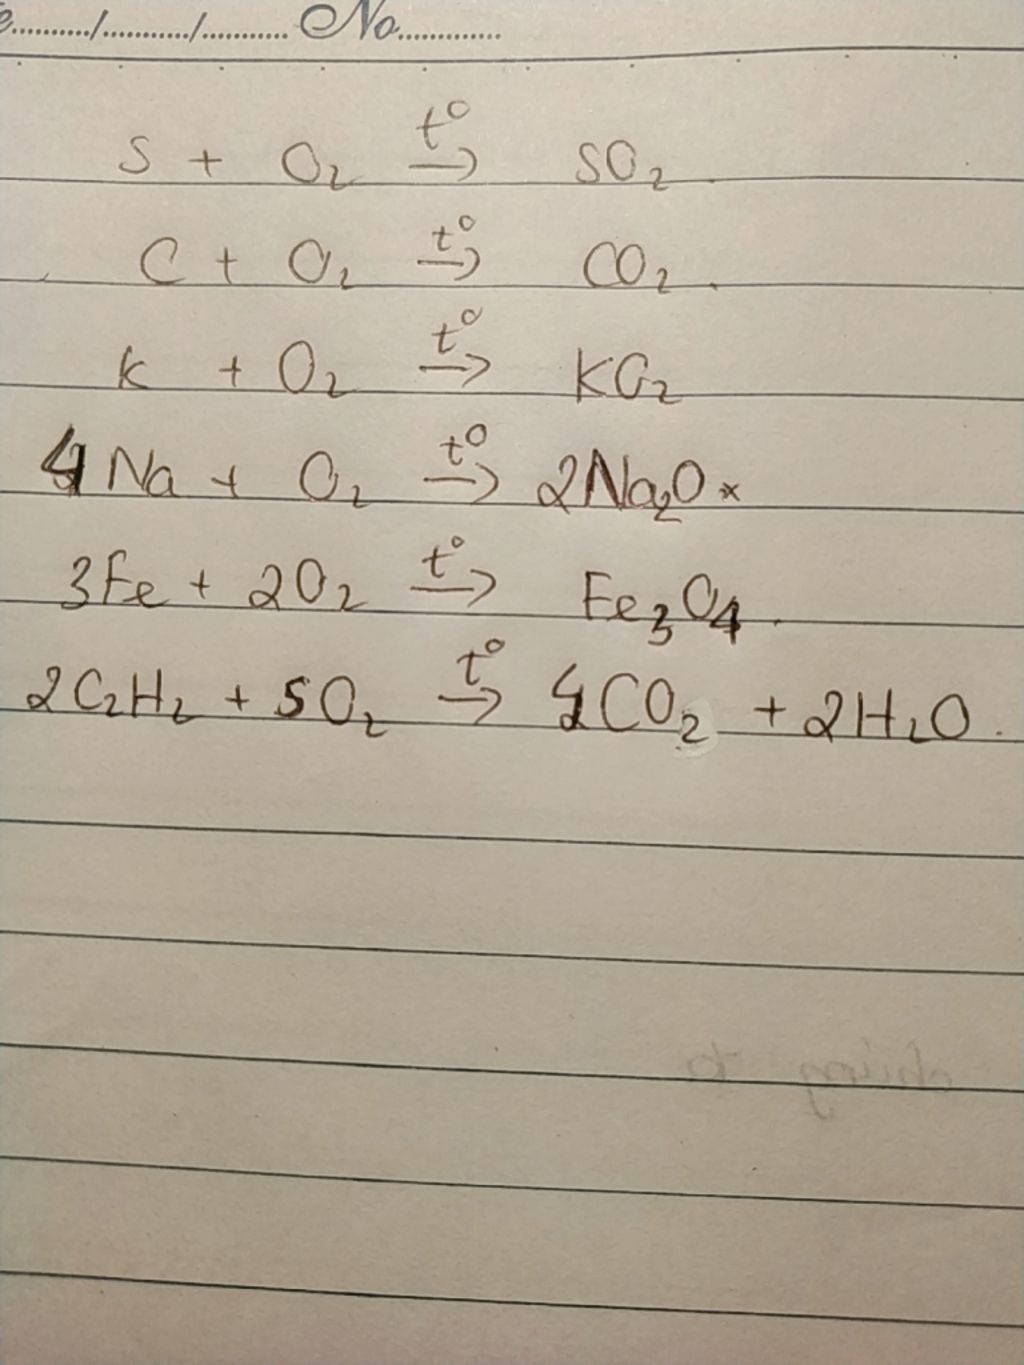 e.........../.........../........... No.............
S + O₂ t° → SO₂.
C + O₂ t° → CO₂.
K + O₂ t° → KO₂
4Na + O₂ t° → 2Na₂O
3Fe + 2O₂ t° → Fe₃O₄.
2C₂H₂ + 5O₂ t° → 4CO₂ + 2H₂O.